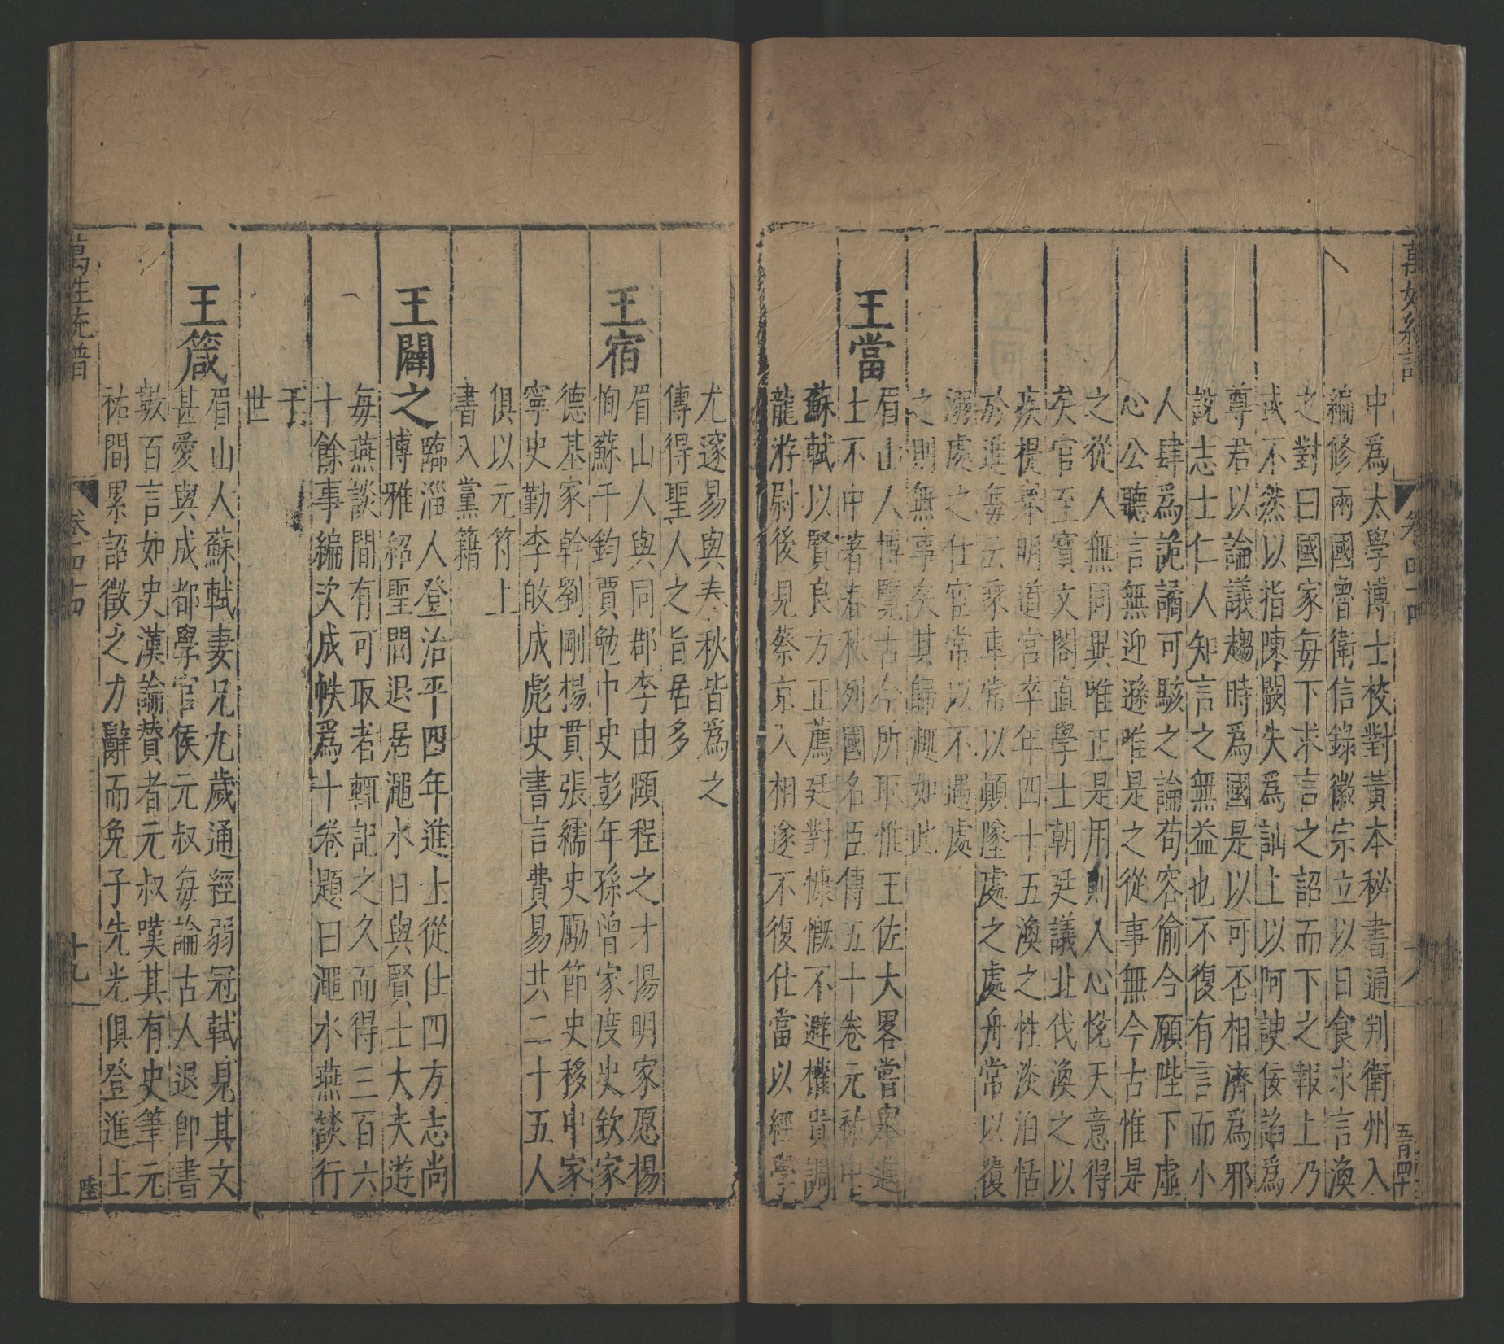 中爲太學博士校對黃本秘書通判衛州入
編修兩國魯衛信錄徽宗立以日食求言渙
之對曰國家毎下求言之詔而下之報上乃
或不然以指陳闕失爲訕上以阿諛佞諂爲
尊君以論議趨時爲國是以可否相濟爲邪
說志士仁人知言之無益也不復有言而小
人肆爲詭譎可駭之論苟容偷今願陛下虛
心公聽言無迎遜唯是之從事無今古惟是
之從人無同異唯正是用則人心悅天意得
矣官至寶文閣直學士朝廷議北伐渙之以
疾提舉明道宮卒年四十五渙之性淡泊恬
於進毎云乘車常以顛墜處之處舟常以覆
溺處之仕宦常以不遇處
之則無事矣其歸趣如此
王當
眉山人博覽古今所取惟王佐大畧嘗舉進
士不中著春秋列國名臣傳五十卷元祐中
蘇軾以賢良方正薦廷對慷慨不避權貴調
龍游尉後見蔡京入相遂不復仕當以經學
尤邃易與春秋皆爲之
傳得聖人之旨居多
王宿
眉山人與同郡李由頤程之才揚明家愿楊
恂蘇千鈞賈勉中史彭年孫曾家度史欽家
德基家幹劉剛楊貫張繻史勵節史移中家
寧史勤李敀成彪史書言費易共二十五人
俱以元符上
書入黨籍
王闢之
臨淄人登治平四年進士從仕四方志尚
博雅紹聖間退居澠水日與賢士大夫遊
毎燕談間有可取者輒記之久而得三百六
十餘事編次成帙爲十卷題曰澠水燕談行
于
世
王箴
眉山人蘇軾妻兄九歲通經弱冠軾見其文
甚愛與成都學官侯元叔毎論古人退卽書
數百言如史漢論贊者元叔嘆其有史筆元
祐間累詔徵之力辭而免子先光俱登進士
萬姓統譜
卷四十四
十九